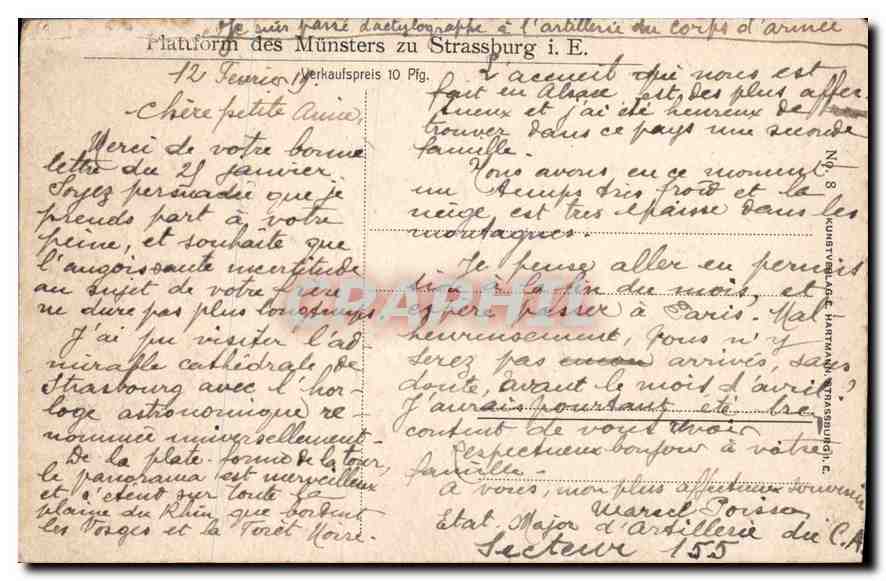 Je suis passé dactylographe à l'artillerie du corps d'armée
Plattform des Münsters zu Strassburg i. E.
Verkaufspreis 10 Pfg.
12 Février 19
Chère petite Amie,
Merci de votre bonne
lettre du 25 janvier.
Soyez persuadée que je
prends part à votre
peine, et souhaite que
l'angoissante incertitude
au sujet de votre frère
ne dure pas plus longtemps
J'ai pu visiter l'ad-
mirable cathédrale de
Strasbourg avec l'hor-
loge astronomique re-
nommée universellement.
De la plate-forme de la tour,
le panorama est merveilleux
et s'étend sur toute la
plaine du Rhin que bordent
les Vosges et la Forêt Noire.
L'accueil qui nous est
fait en Alsace est des plus affec-
tueux et j'ai été heureux de
trouver dans ce pays une seconde
famille.
Nous avons en ce moment
un temps très froid et la
neige est très épaisse dans les
montagnes.
Je pense aller en permis
sion à la fin du mois, et
espère passer à Paris. Mal
heureusement, vous n'y
serez pas encore arrivés, sans
doute, avant le mois d'avril
J'aurais pourtant été bien
content de vous revoir
Respectueux bonjour à votre
famille.
A vous, mon plus affectueux souvenir
Marcel Poisson
Etat-Major d'Artillerie du C.A.
Secteur 155
No. 8
KUNSTVERLAG E. HARTMANN, STRASSBURG i. E.
CPAPHIL